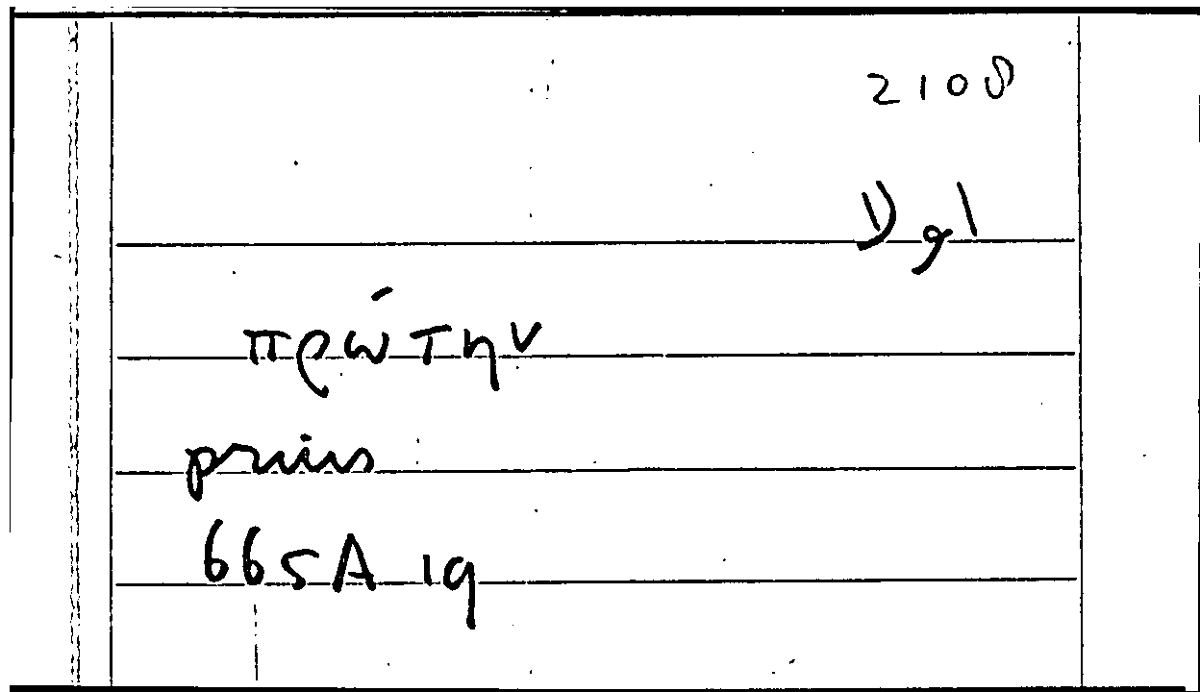 2108
Dgl
πρώτην
prius
665A 19